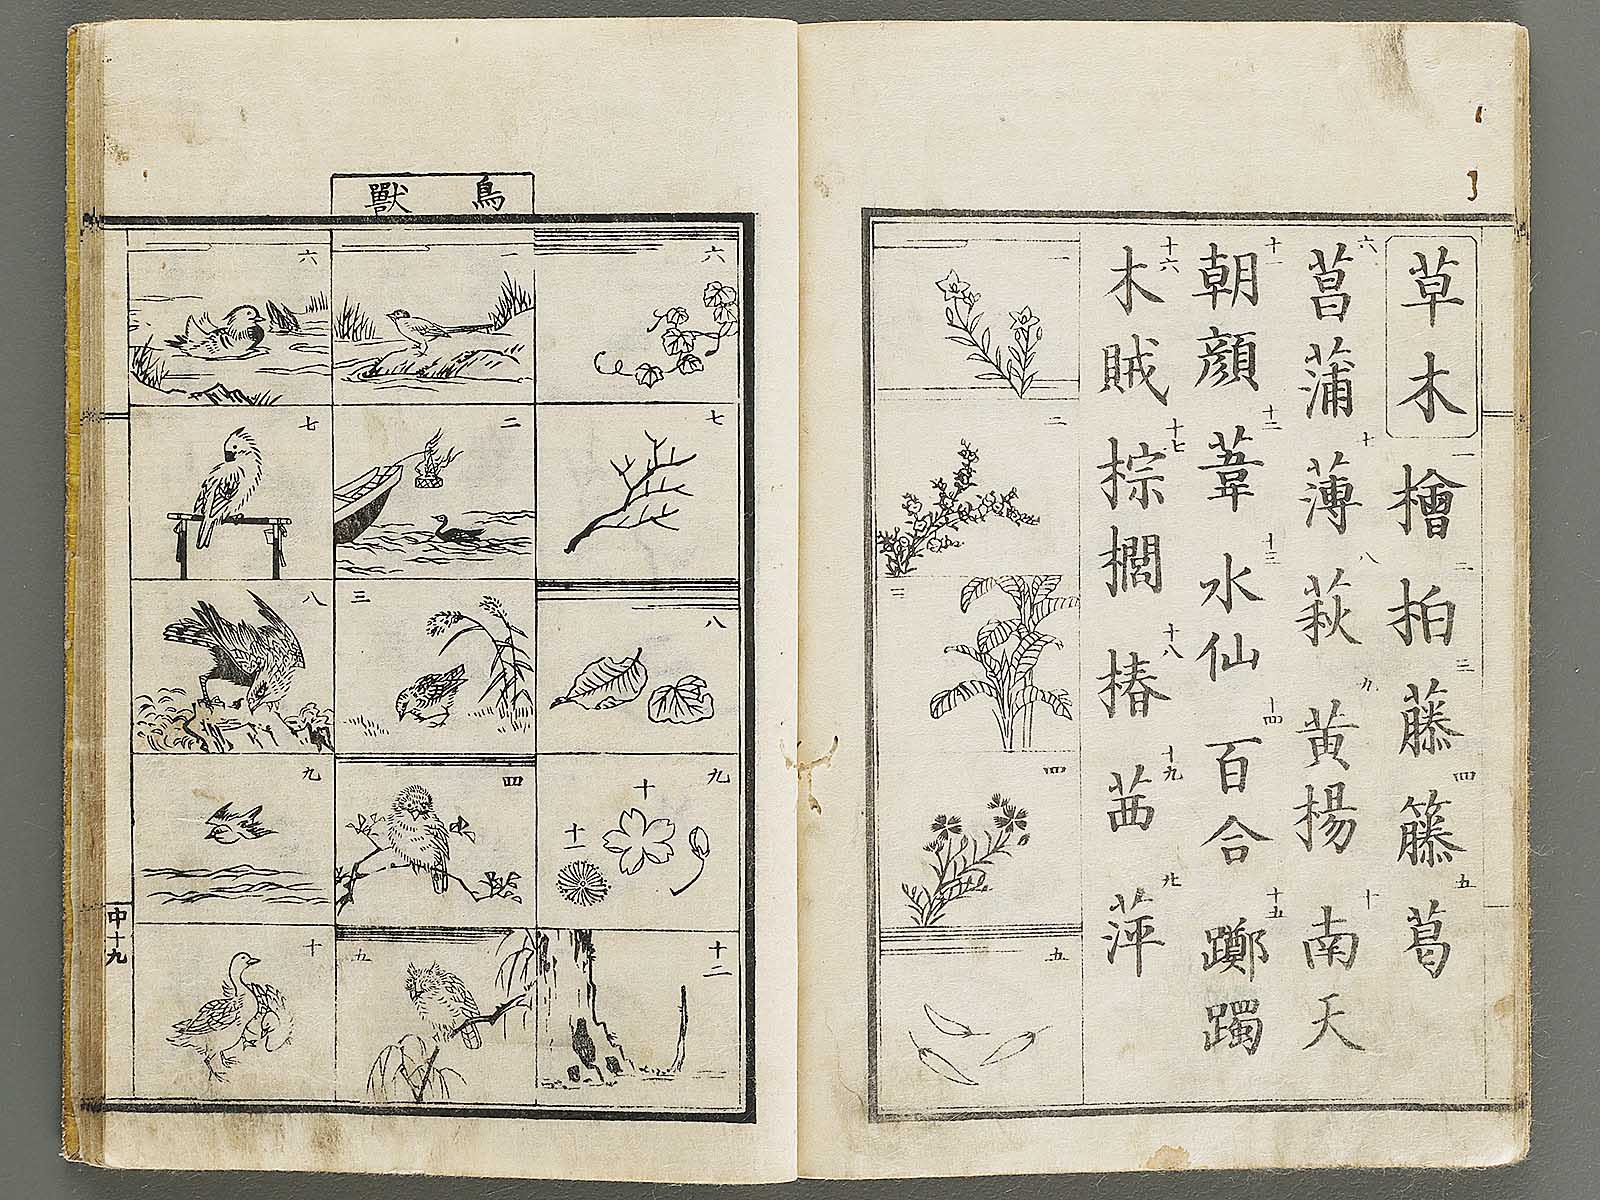 草木 一 檜 二 柏 三 藤 四 籐 五 葛
六 菖蒲 七 薄 八 萩 九 黄楊 十 南天
十一 朝顔 十二 葦 十三 水仙 十四 百合 十五 躑躅
十六 木賊 十七 棕櫚 十八 椿 十九 茜 廿 萍
一
二
三
四
五
鳥獸
六
七
八
九
十
十一
十二
一
二
三
四
五
六
七
八
九
十
中十九